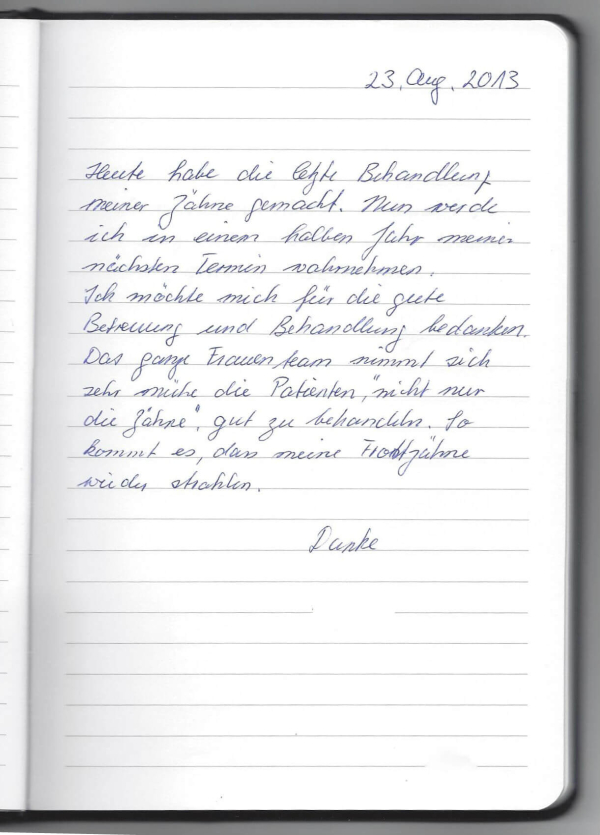 23. Aug. 2013
Heute habe die letzte Behandlung
meiner Zähne gemacht. Nun werde
ich in einem halben Jahr meinen
nächsten Termin wahrnehmen.
Ich möchte mich für die gute
Betreuung und Behandlung bedanken.
Das ganze Frauenteam nimmt sich
sehr mühe die Patienten, "nicht nur
die Zähne", gut zu behandeln. So
kommt es, dass meine Frontzähne
wieder strahlen.
Danke